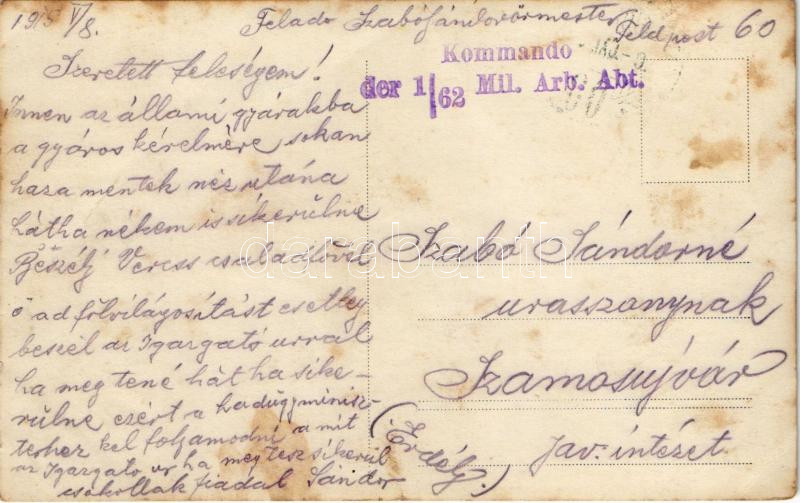 1915 V/8.
Felado Szabó Sándor őrmester
Feldpost 60
Kommando
der 1/62 Mil. Arb. Abt.
Szeretett feleségem!
Innen az állami gyárakba
a gyáros kérelmére sokan
haza mentek néz utána
hátha nékem is sikerülne
Beszélj Veress családdval
ő ad fölvilágosítást esetleg
beszél az Igazgató urral
ha meg tené hátha sike-
rülne ezért a hadügyminisz-
terhez kel folyamodni a mit
az Igazgato ur ha meg tesz sikerül
csokollak fiadal Sándor
Szabó Sándorné
urasszonynak
Szamosujvár
(Erdély)
Jav. intézet.
darabanth.com